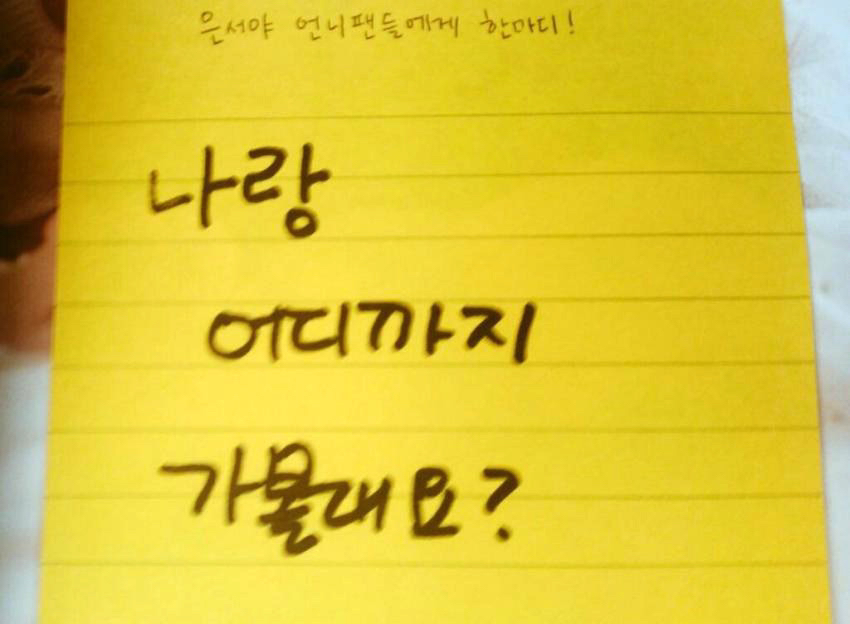 은서야 언니팬들에게 한마디!
나랑
어디까지
가볼대요?